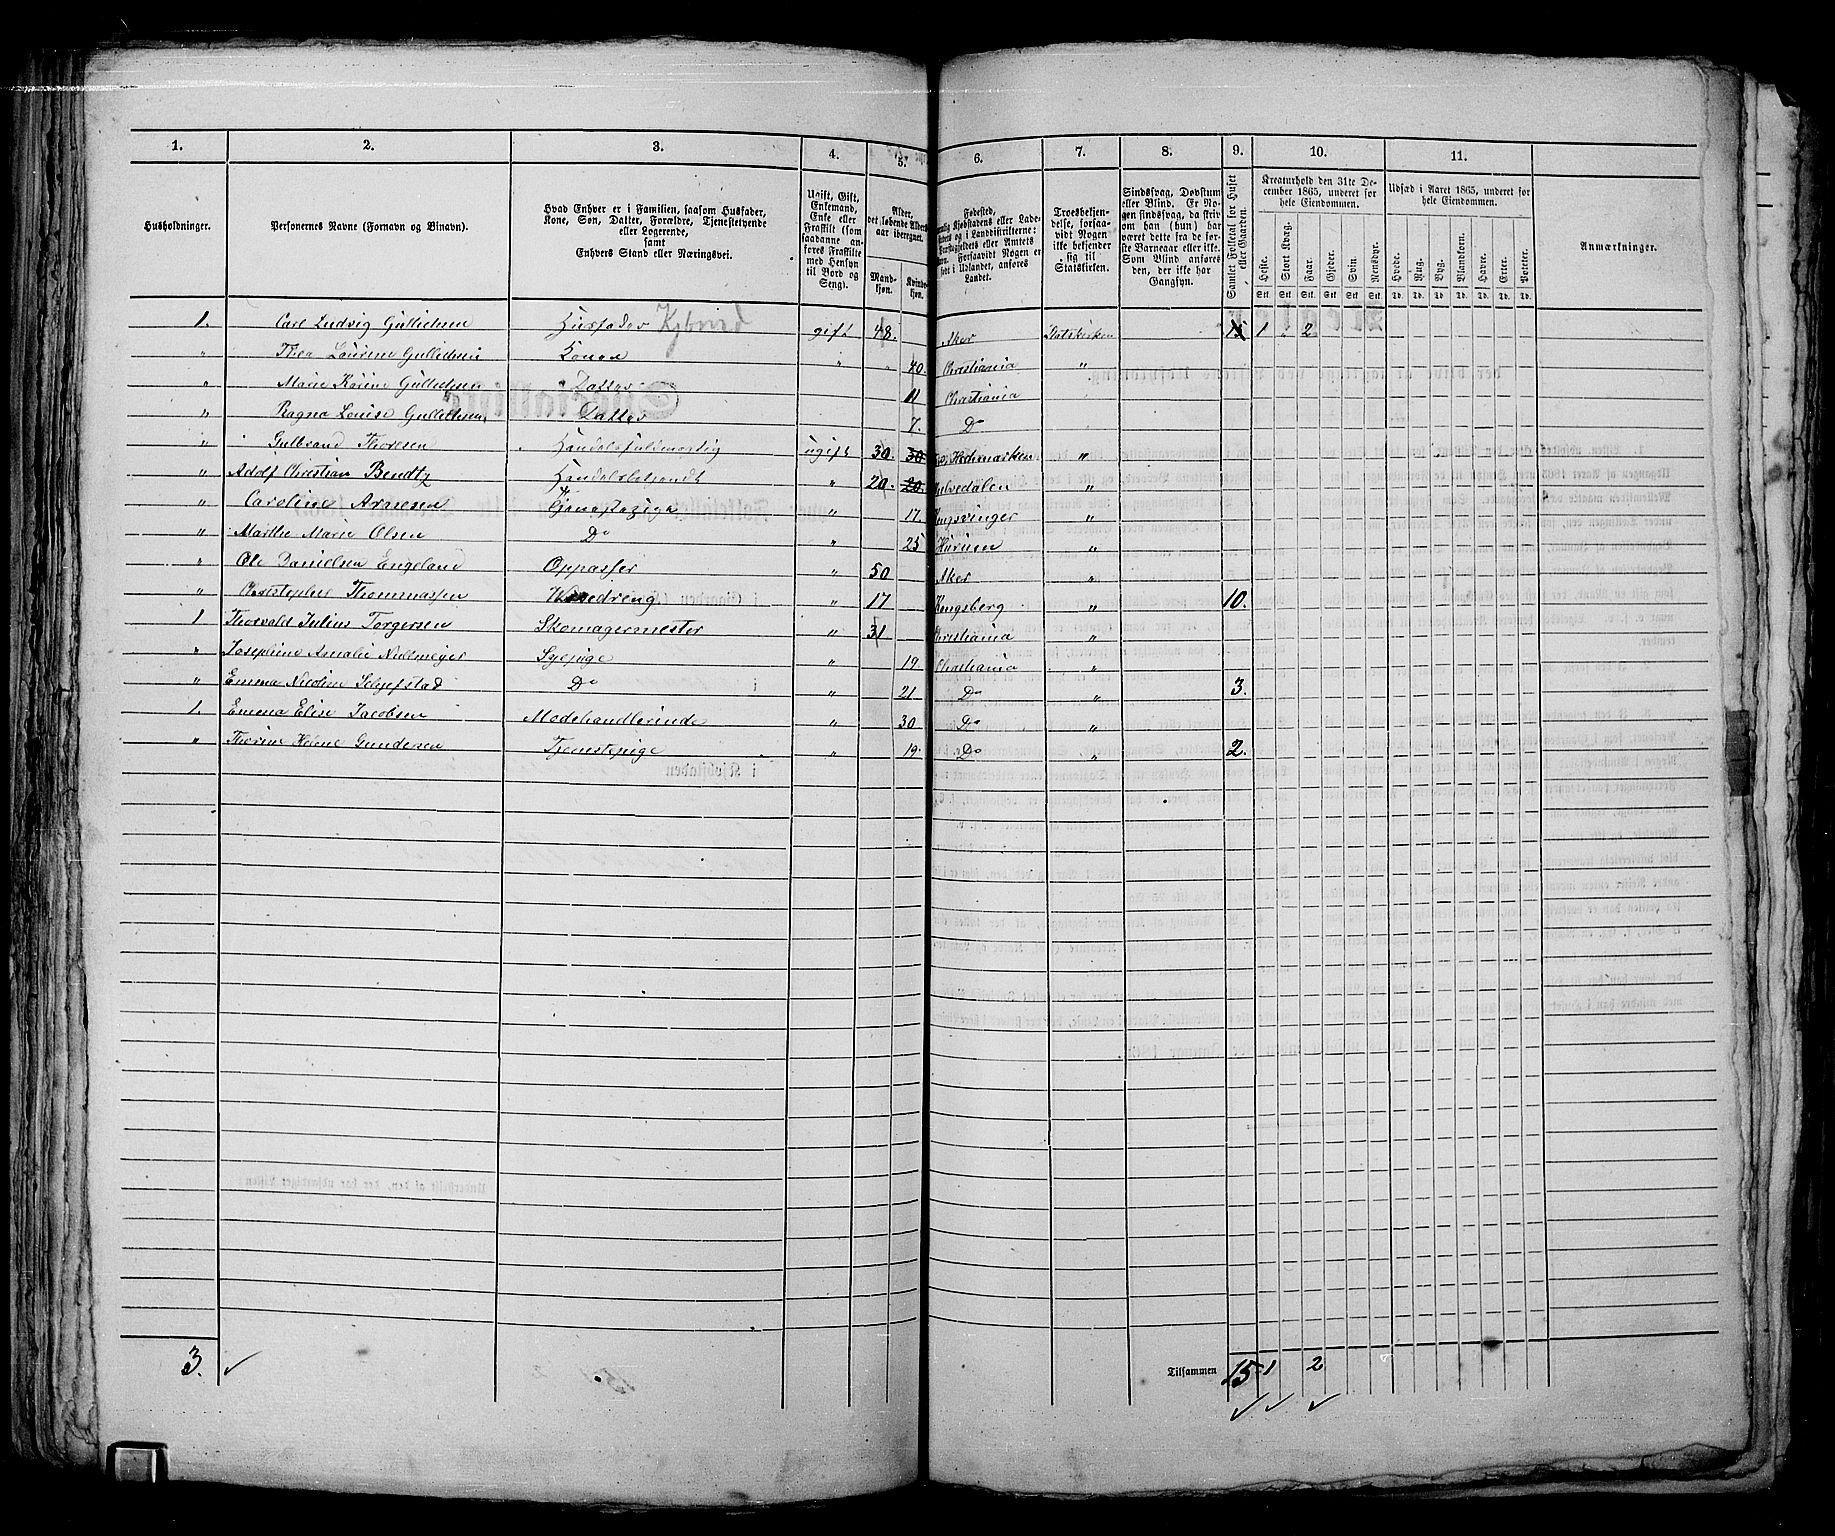 1. 2. 3. 4. 5. 6. 7. 8. 9. 10. 11.
Husholdninger.
Personernes Navne (Fornavn og Binavn).
Hvad Enhver er i Familien, saasom Husfader, Kone, Søn, Datter, Forældre, Tjenestetyende eller Logerende, samt Enhvers Stand eller Næringsvei.
Ugift, Gift, Enkemand, Enke eller Fraskilt (som saadanne anføres Fraskilte med Hensyn til Bord og Seng).
Alder, det løbende Alders-aar iberegnet.
Mand-kjøn. Kvinde-kjøn.
Fødested,
Troesbekjendelse, forsaavidt Nogen ikke bekjender sig til Statskirken.
Sindssvag, Døvstum eller Blind. Er Nogen sindssvag, da skrives om han (hun) har været dette fra de første Barneaar eller ikke. Som Blind anføres den, der ikke har Gangsyn.
Samlet Folketal for Huset eller Gaarden.
Kreaturhold den 31te December 1865, underet for hele Eiendommen.
Heste. Stort Kvæg. Faar. Gjeder. Svin. Rensdyr.
Stk. Stk. Stk. Stk. Stk. Stk.
Udsæd i Aaret 1865, underet for hele Eiendommen.
Hvede. Rug. Byg. Blandkorn. Havre. Erter. Poteter.
Td. Td. Td. Td. Td. Td. Td.
Anmærkninger.
1. Carl Ludvig Gullichsen Husfader gift 48. Aker Statskirken 15 1 " 2
" Thea Laurine Gullichsen Konen " " 40. Christiania "
" Marie Karine Gullichsen Datter 11 Christiania
" Ragna Louise Gullichsen Datter 7. Do
" Gulbrand Thoresen Handelsfuldmægtig ugift 30. 30 Hedemarken "
" Adolf Christian Bendtz Handelsbetjendt " 20. 20. "
" Caroline Arnesen Tjenestepige " 17. Kongsvinger "
" Marthe Marie Olsen Do " 25 "
" Ole Danielsen Engeland Oppasser " 50 Aker "
" Christopher Thommassen " 17 Kongsberg " 10.
1 Thorvald Julius Torgersen Skomagermester " 31 Christiania "
" Josephine Amalie Syepige " 19 Christiania "
" Emma Nicoline Schefstad Do " 21 Do " 3.
1. Emma Elise Jacobsen Modehandlerinde " 30 Do "
" Thorine Helene Gundersen Tjenestepige " 19. Do " 2.
3. Tilsammen 15 1 2